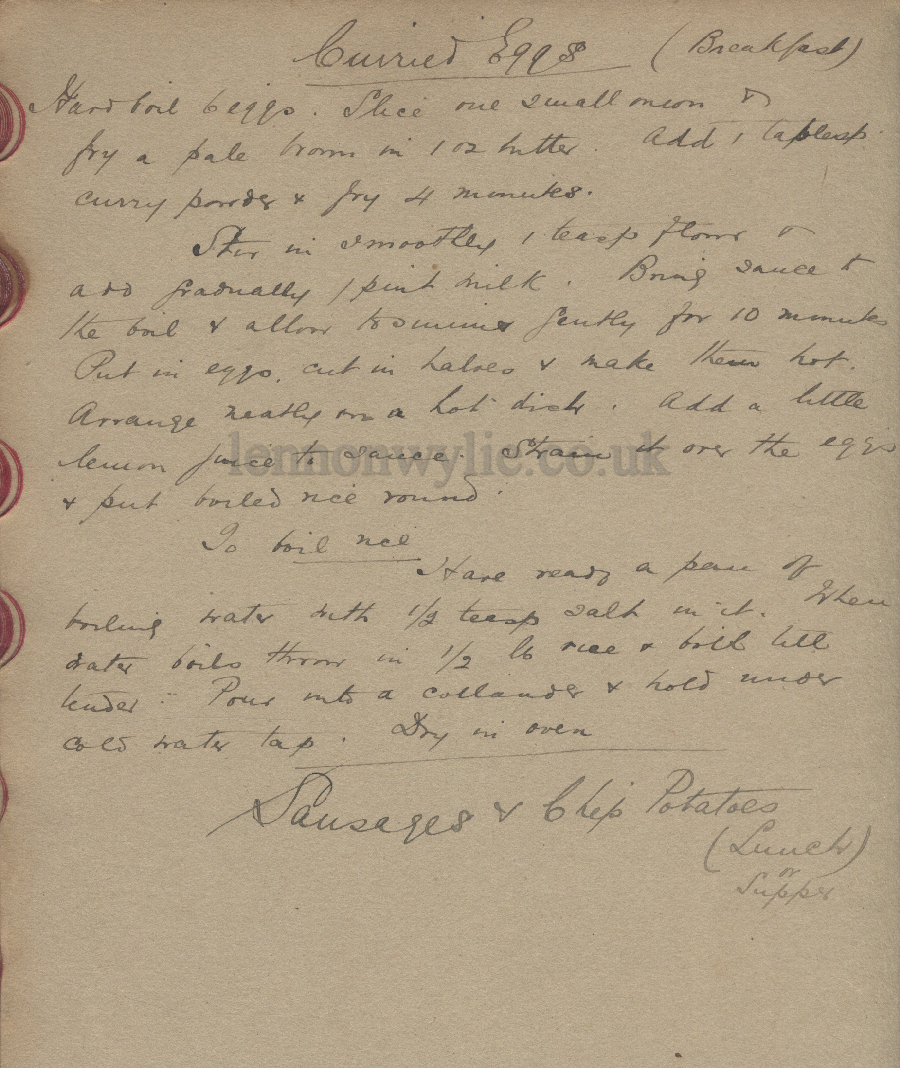 Curried Eggs (Breakfast)
Hard boil 6 eggs. Slice one small onion &
fry a pale brown in 1 oz butter. Add 1 tablesp.
curry powder & fry 4 minutes.
Stir in smoothly 1 teasp flour &
add gradually 1 pint milk. Bring sauce to
the boil & allow to simmer gently for 10 minutes
Put in eggs, cut in halves & make them hot.
Arrange neatly on a hot dish. Add a little
lemon juice to sauce. Strain it over the eggs
& put boiled rice round.
To boil rice
Have ready a pan of
boiling water with 1/2 teasp salt in it. When
water boils throw in 1/2 lb rice & boil till
tender. Pour into a collander & hold under
cold water tap. Dry in oven
Sausages & Chip Potatoes
(Lunch)
or
Supper
lennonwylie.co.uk